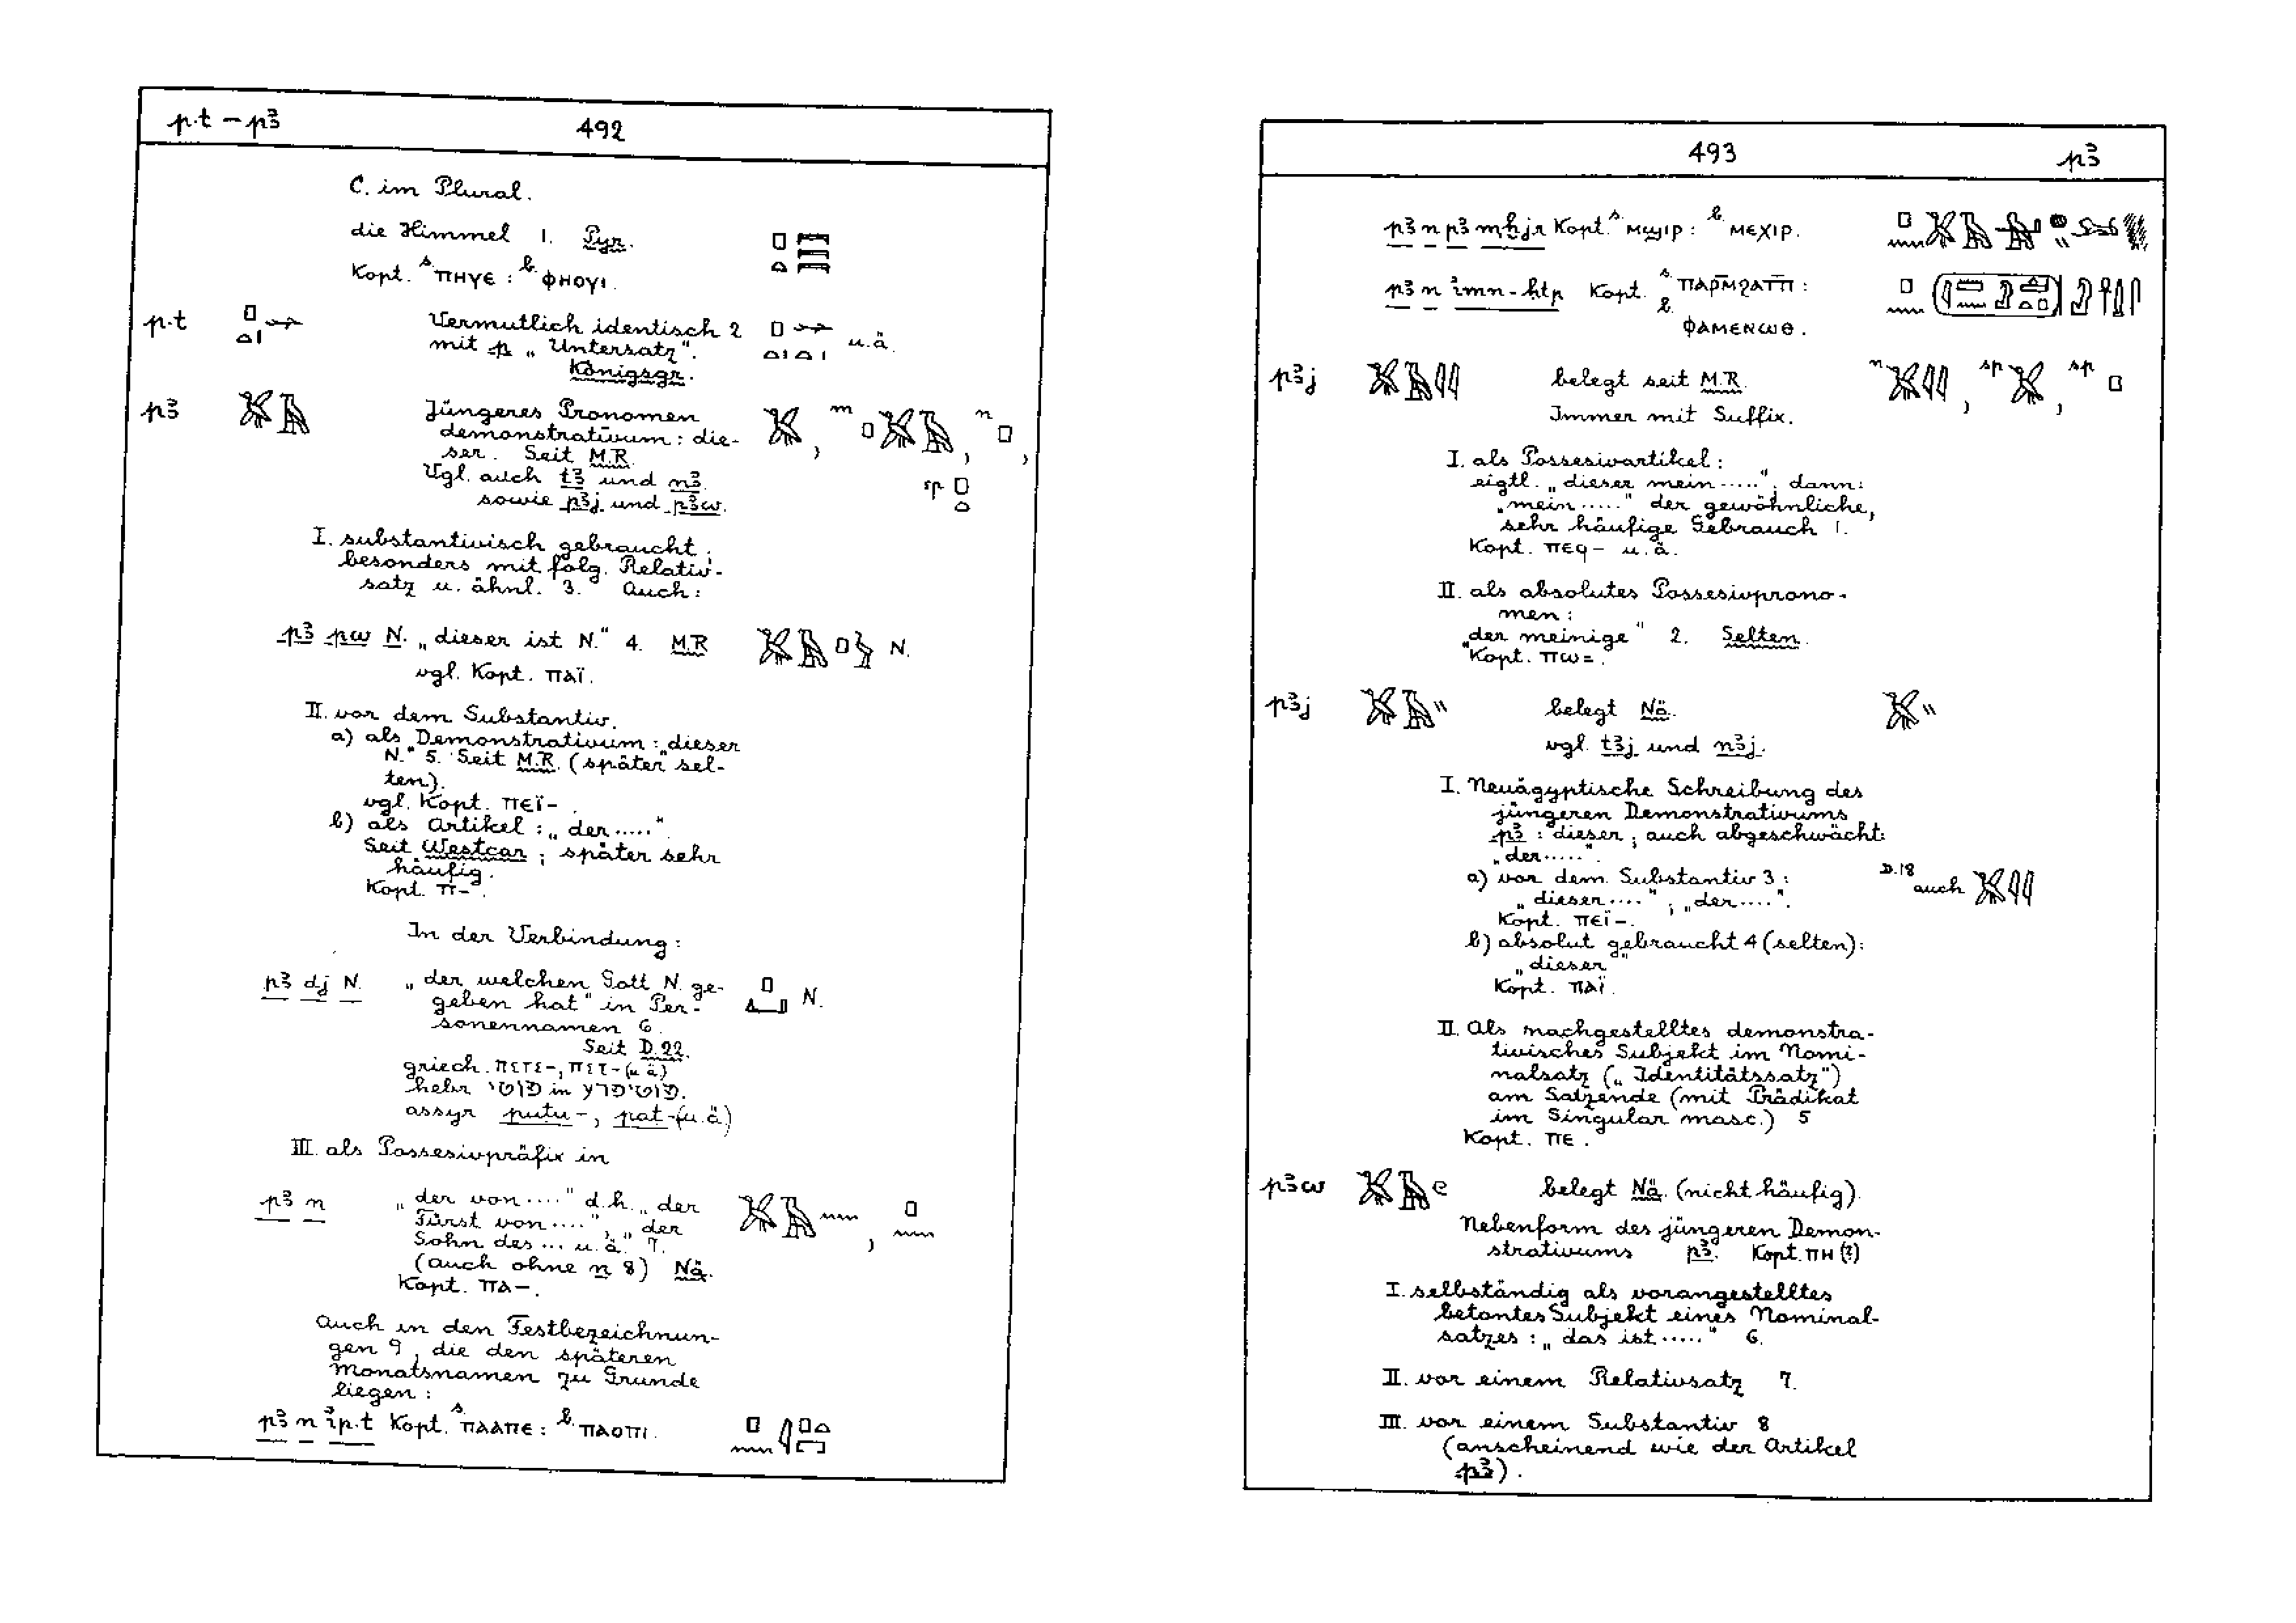 p.t – pꜣ 492
C. im Plural.
die Himmel 1. Pyr.
Kopt. s. ⲡⲏⲩⲉ : b. ⲫⲏⲟⲩⲓ.
p.t Vermutlich identisch 2 u.ä.
mit p „Untersatz".
Königsgr.
pꜣ Jüngeres Pronomen
demonstrativum : die-
ser. Seit M.R.
Vgl. auch tꜣ und nꜣ.
sowie pꜣj und pꜣw.
I. substantivisch gebraucht,
besonders mit folg. Relativ-
satz u. ähnl. 3. Auch:
pꜣ pw N. „dieser ist N." 4. M.R N.
vgl. Kopt. ⲡⲁⲓ̈.
II. vor dem Substantiv.
a) als Demonstrativum : „dieser
N." 5. Seit M.R. (später sel-
ten).
vgl. Kopt. ⲡⲉⲓ̈- .
b) als Artikel : „der....."
Seit Westcar ; später sehr
häufig.
Kopt. ⲡ- .
In der Verbindung:
pꜣ dj N. „der welchen Gott N. ge- N.
geben hat" in Per-
sonennamen 6.
Seit D.22.
griech. πετε-, πετ- (u.ä)
hebr פוטי in פוטיפרע.
assyr putu-, pat- (u.ä)
III. als Possesivpräfix in
pꜣ n „der von ...." d.h. „der
Fürst von ....", „der
Sohn des ... u.ä. 7.
(auch ohne n 8) Nä.
Kopt. ⲡⲁ-.
Auch in den Festbezeichnun-
gen 9, die den späteren
Monatsnamen zu Grunde
liegen :
pꜣ n ip.t Kopt. s. ⲡⲁⲁⲡⲉ : b. ⲡⲁⲟⲡⲓ.
493 pꜣ
pꜣ n pꜣ mḫjr Kopt. s. ⲙϣⲓⲣ : b. ⲙⲉⲭⲓⲣ.
pꜣ n imn-htp Kopt. s. ⲡⲁⲣⲙ̄ϩⲁⲧⲡ̄ :
b. ⲫⲁⲙⲉⲛⲱⲑ.
pꜣj belegt seit M.R.
Immer mit Suffix.
I. als Possesivartikel :
eigtl. „dieser mein ....."; dann:
„mein ....." der gewöhnliche,
sehr häufige Gebrauch 1.
Kopt. ⲡⲉϥ- u.ä.
II. als absolutes Possesivprono-
men :
„der meinige" 2. Selten.
Kopt. ⲡⲱ=.
pꜣj belegt Nä.
vgl. tꜣj und nꜣj.
I. Neuägyptische Schreibung des
jüngeren Demonstrativums
pꜣ : dieser ; auch abgeschwächt:
„der.....".
a) vor dem Substantiv 3 : D.18 auch
„dieser ...." ; „der....".
Kopt. ⲡⲉⲓ̈-.
b) absolut gebraucht 4 (selten):
„dieser"
Kopt. ⲡⲁⲓ̈.
II. Als nachgestelltes demonstra-
tivisches Subjekt im Nomi-
nalsatz („Identitätssatz")
am Satzende (mit Prädikat
im Singular masc.) 5
Kopt. ⲡⲉ.
pꜣw belegt Nä. (nicht häufig).
Nebenform des jüngeren Demon-
strativums pꜣ. Kopt. ⲡⲏ (?)
I. selbständig als vorangestelltes
betontes Subjekt eines Nominal-
satzes : „das ist ....." 6.
II. vor einem Relativsatz 7.
III. vor einem Substantiv 8
(anscheinend wie der Artikel
pꜣ).